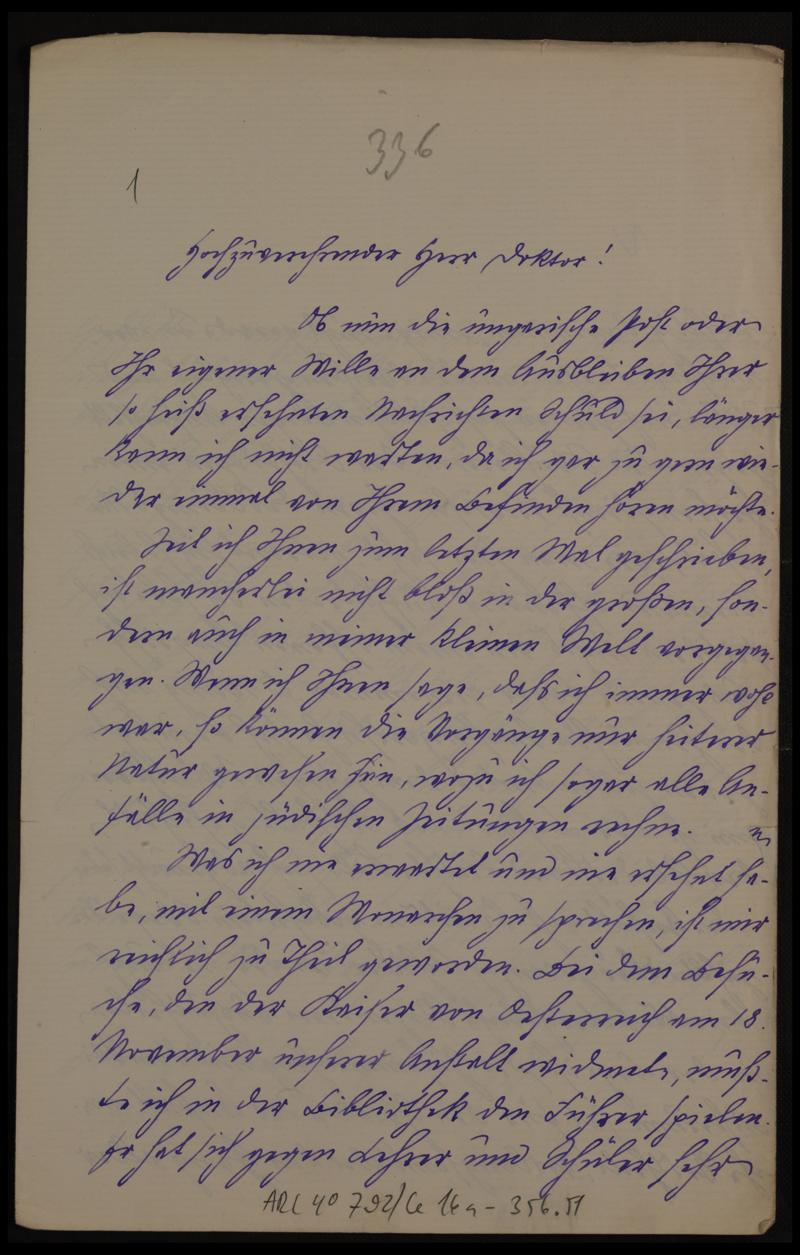 336
1
Hochzuverehrender Herr Doktor!
Ob nun die ungarische Post oder
Ihr eigener Wille an dem Ausbleiben Ihrer
so heiß ersehnten Nachrichten Schuld sei, länger
kann ich nicht warten, da ich gar zu gern wie-
der einmal von Ihrem Befinden hören möchte.
Seit ich Ihnen zum letzten Mal geschrieben,
ist mancherlei nicht bloß in der großen, son-
dern auch in meiner kleinen Welt vorgegan-
gen. Wenn ich Ihnen sage, daß ich immer wohl
war, so können die Vorgänge nur heiterer
Natur gewesen sein, wozu ich sogar alle An-
fälle in jüdischen Zeitungen rechne.
Was ich nie erwartet und nie ersehnt ha-
be, mit einem Monarchen zu sprechen, ist mir
reichlich zu Theil geworden. Bei dem Besu-
che, den der Kaiser von Oesterreich am 18.
November unserer Anstalt widmete, muß-
te ich in der Bibliothek den Führer spielen.
Er hat sich gegen Lehrer und Schüler sehr
ARC 4° 792/Ce 14a - 356.51